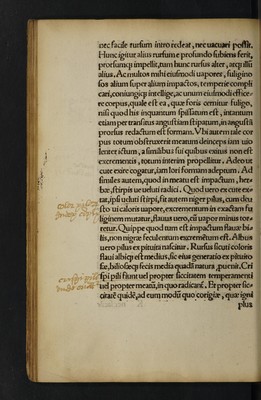 nec facile rursum intro redeat, nec uacuari possit.
Hunc igitur alius rursum e profundo subiens ferit,
prorsumq; impellit, tum hunc rursus alter, atq; illi
alius. Ac multos mihi eiusmodi uapores, fuligino
sos alium super alium impactos, tempe­rie compli
cari, coniungiq; intellige, ac unum eiusmodi effice-
re corpus, quale est ea, quæ foris cernitur fuligo,
nisi quod hic inquantum spissatum est, in tantum
etiam per transitus angustiam stipatum, in angusti
prorsus redactum est formam. Vbi autem tale cor
pus totum obstruxerit meatum deinceps iam uio
lenter ictum, a similibus sui quibus exitus non est
excrementis, totum interim propellitur. Adeo ut
cute exire cogatur, iam lori formam adeptum. Ad
similes autem, quod in meatu est impactum, her-
bæ, stirpis ue ueluti radici. Quod uero ex cute ex-
tat, ipsi ueluti stirpi, fit autem niger pilus, cum deu
sto ui caloris uapore, excrementum in exactam fu
liginem mutatur, flauus uero, cū uapor minus tor-
retur. Quippe quod tum est impactum flauæ bi-
lis, non nigræ feculentum excremētum est. Albus
uero pilus ex pituita nascitur. Rursus sicuti coloris
flaui albiq; est medius, sic eius generatio ex pituito
sæ, biliosæq; fecis media quadā natura puenit. Cri
spi pili fiunt uel propter siccitatem temperamenti
uel propter meatū, in quo radicant. Et propter sic-
citatē quidē, ad eum modū quo corrigiæ, quæ igni
plus